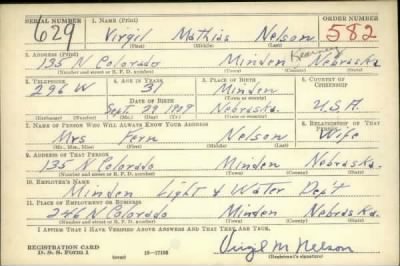 SERIAL NUMBER 1. NAME (Print) ORDER NUMBER
629 Virgil Mathias Nelson 582
(First) (Middle) (Last)
2. ADDRESS (Print)
135 N Colorado Minden Kearney Nebraska
(Number and street or R. F. D. number) (Town) (County) (State)
3. TELEPHONE 4. AGE IN YEARS 5. PLACE OF BIRTH 6. COUNTRY OF CITIZENSHIP
296 W 31 Minden
DATE OF BIRTH (Town or county)
Sept 29 1909 Nebraska U.S.A.
(Mo.) (Day) (Yr.) (State or country)
7. NAME OF PERSON WHO WILL ALWAYS KNOW YOUR ADDRESS 8. RELATIONSHIP OF THAT PERSON
Mrs Fern Nelson Wife
(Mr., Mrs., Miss) (First) (Middle) (Last)
9. ADDRESS OF THAT PERSON
135 N Colorado Minden Nebraska.
(Number and street or R. F. D. number) (Town) (County) (State)
10. EMPLOYER'S NAME
Minden Light & Water Dep't
11. PLACE OF EMPLOYMENT OR BUSINESS
246 N Colorado Minden Nebraska.
(Number and street or R. F. D. number) (Town) (County) (State)
I AFFIRM THAT I HAVE VERIFIED ABOVE ANSWERS AND THAT THEY ARE TRUE.
REGISTRATION CARD
D. S. S. Form 1 16—17105 Virgil M Nelson
(Registrant's signature)